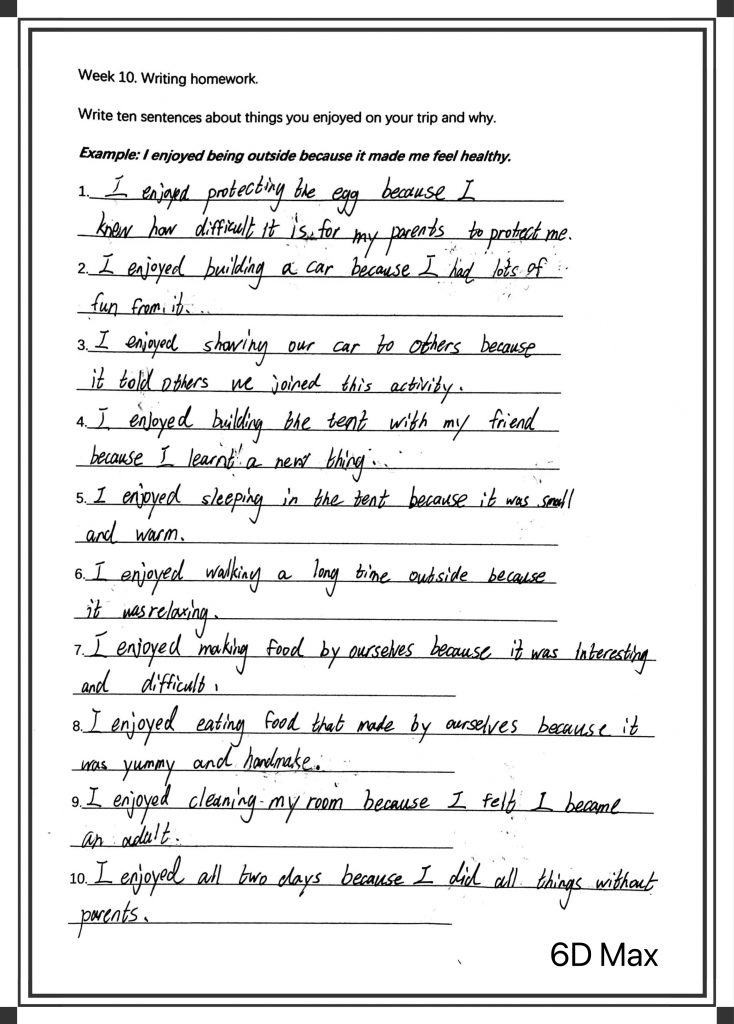 Week 10. Writing homework.
Write ten sentences about things you enjoyed on your trip and why.
Example: I enjoyed being outside because it made me feel healthy.
1. I enjoyed protecting the egg because I
knew how difficult it is for my parents to protect me.
2. I enjoyed building a car because I had lots of
fun from it.
3. I enjoyed showing our car to others because
it told others we joined this activity.
4. I enjoyed building the tent with my friend
because I learnt a new thing.
5. I enjoyed sleeping in the tent because it was small
and warm.
6. I enjoyed walking a long time outside because
it was relaxing.
7. I enjoyed making food by ourselves because it was interesting
and difficult.
8. I enjoyed eating food that made by ourselves because it
was yummy and handmake.
9. I enjoyed cleaning my room because I felt I became
an adult.
10. I enjoyed all two days because I did all things without
parents.
6D Max